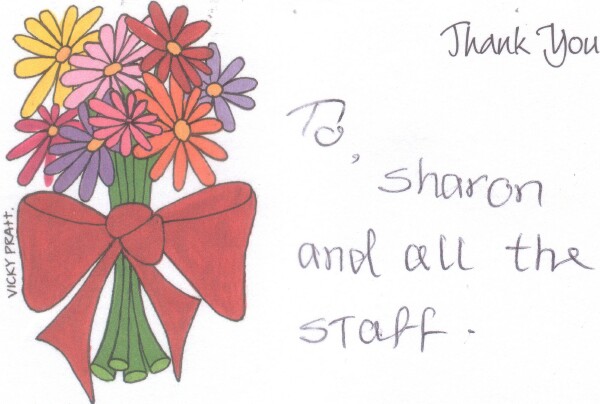 Thank You
To,
sharon
and all the
staff.
VICKY PRATT.